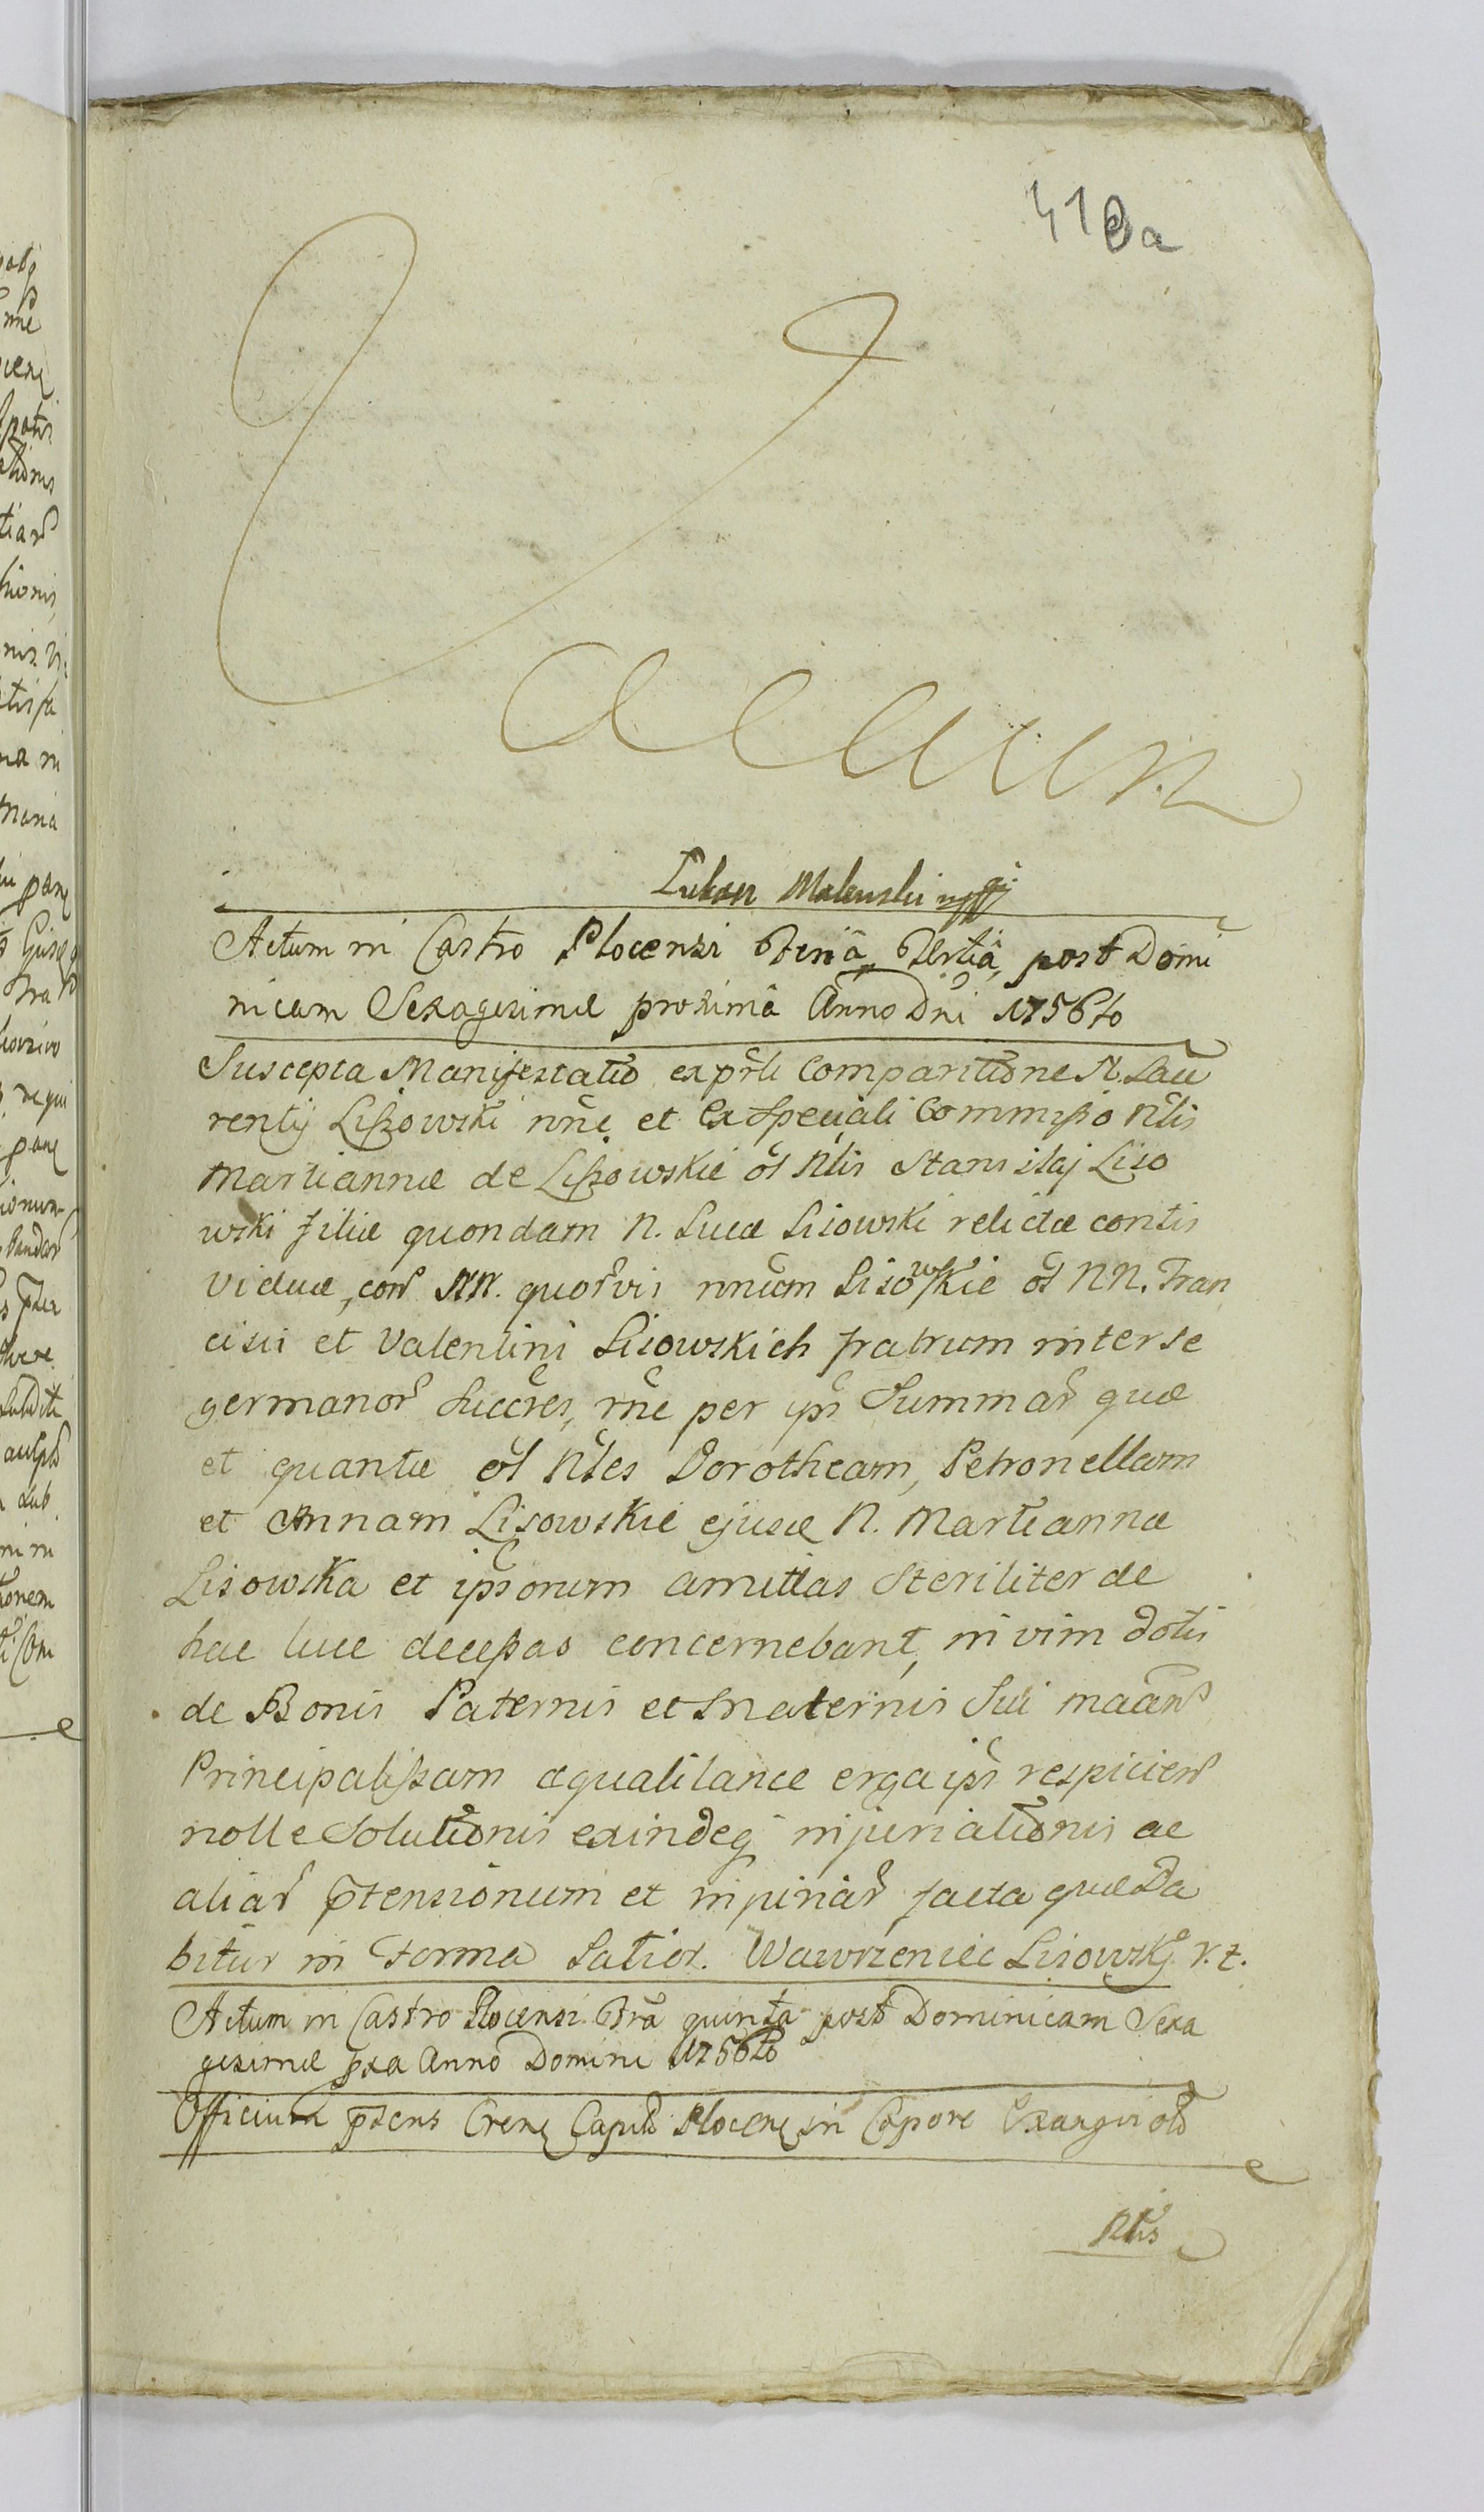 410a
Vacuum
Actum in Castro Plocensi Feriâ Tertiâ, post Domi
nicam Sexagesimæ proximâ Anno Dni 1756to
Suscepta Manifestatio ex prli Comparitione N. Lau
rentij Lißowski nne et ex Speciali Commißo Nlis
Martiannæ de Lißowskie ol Nlis Stanislaj Liso
wski filiæ quondam N. Lucæ Lisowski relictæ contis
viduæ, con NN. quorvis nnum Lisowskie ol NN. Fran
cisci et Valentini Lisowskich fratrum inter se
germanor Succres, rne per ips Summar quæ
et quantæ ol Nles Dorotheam, Petronellam
et Annam Lisowskie ejusd N. Martianna
Lisowska et ipsorum amittas Steriliter de
hac luce deceßas concernebant, in vim dotis
de Bonis Paternis et Maternis Sui maan
Principalißam æquali lance erga ips respicien
nolle Solutionis exindeq injuriationis ac
aliar ptensionum et injuriar facta quæ Da
bitur in Forma Latior. Wawrzeniec Lisowski r. z.
Actum in Castro Plocensi Fra quinta post Dominicam Sexa
gesimæ pxa Anno Domini 1756to
Officium psens Cren Capitl Plocen in Copore
Nlis